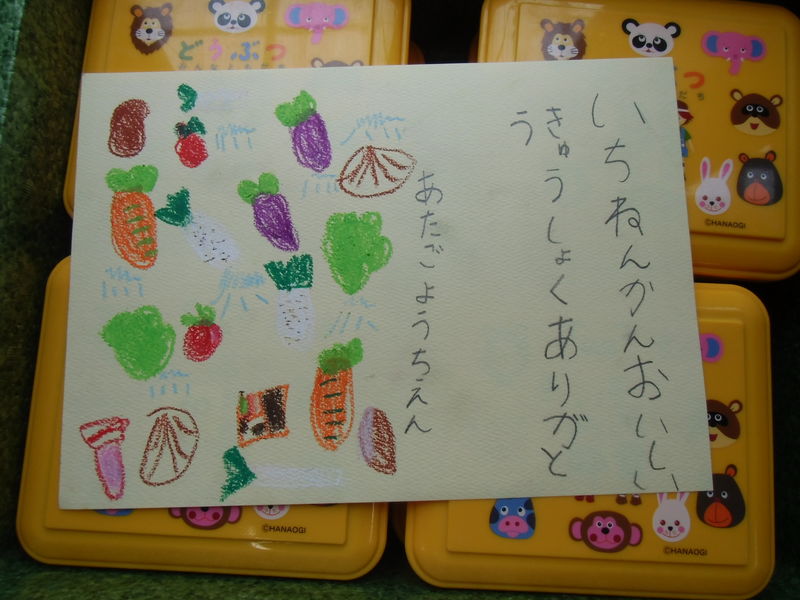 いちねんかんおいしい
きゅうしょくありがと
う
あたごようちえん
どうぶつ
つ
だち
©HANAOGI
©HANAOGI
©HANAOGI